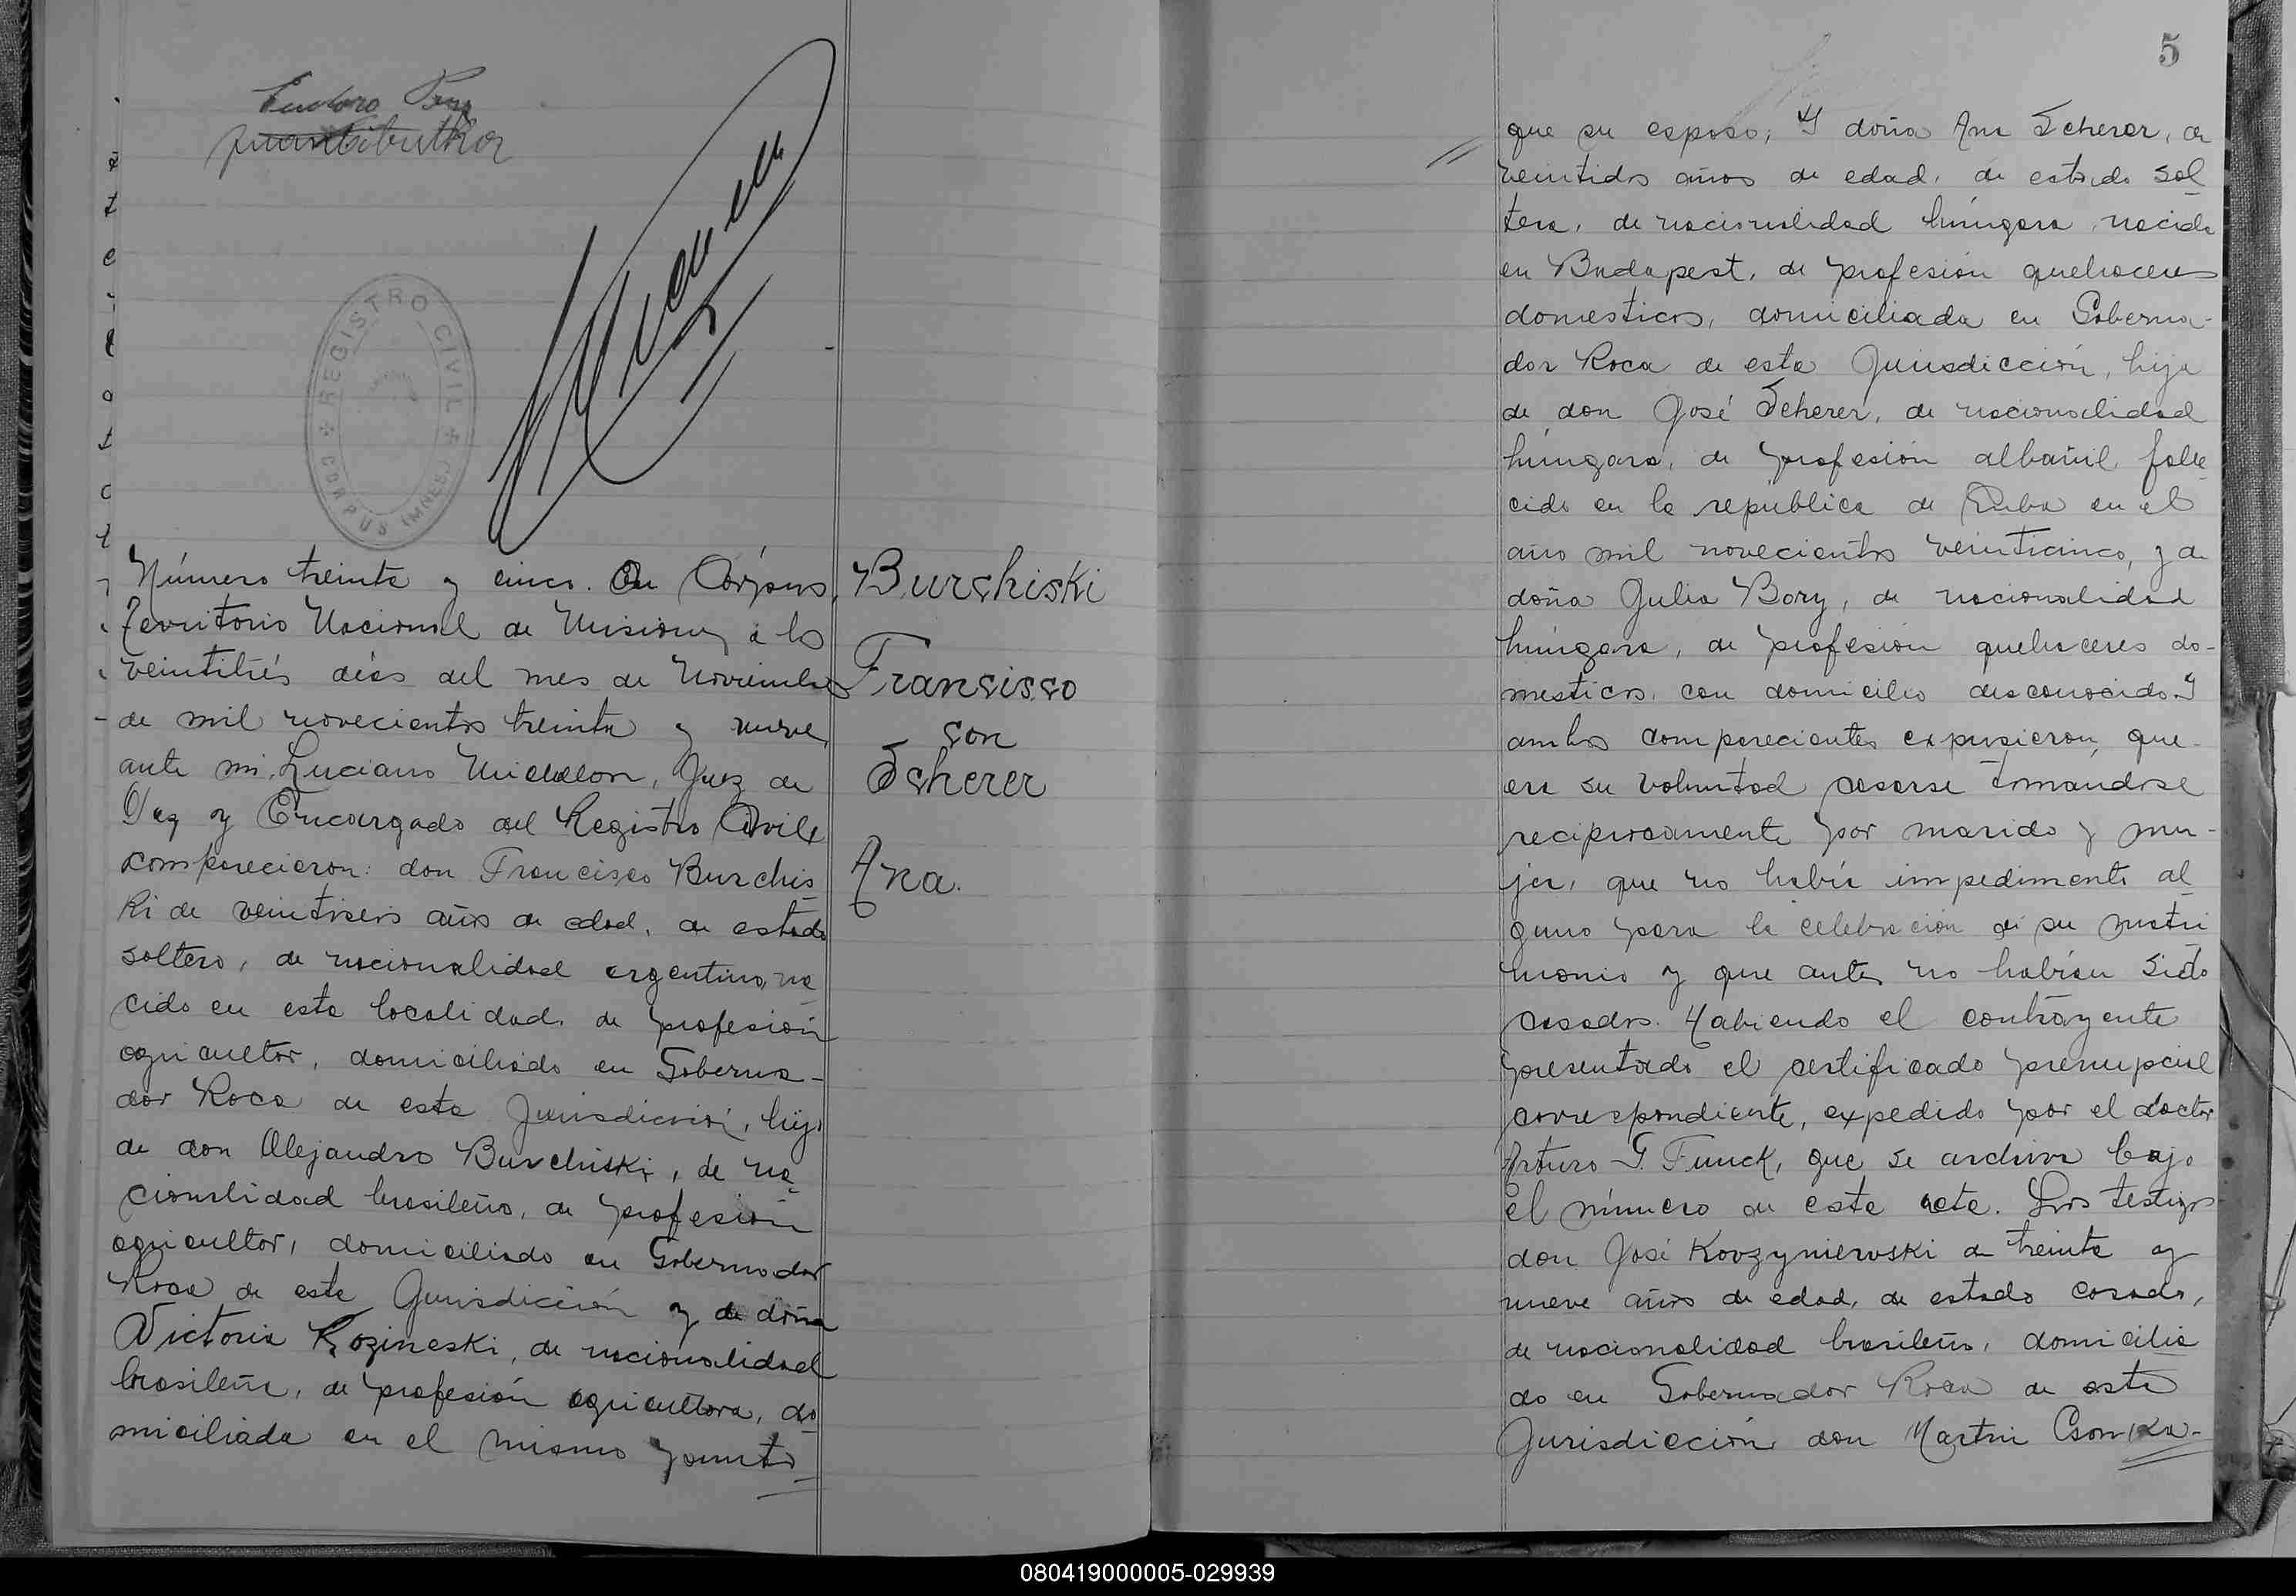 REGISTRO CIVIL
CORPUS
Número treinta y cinco. En Corpus,
Territorio Nacional de Misiones a los
veintitrés días del mes de Noviembre
de mil novecientos treinta y nueve,
ante mi, Luciano Micklelon, Juez de
Paz y Encargado del Registro Civil
comparecieron: don Francisco Burchis
ki de veintiseis años de edad, de estado
soltero, de nacionalidad argentina, na
cido en esta localidad, de profesión
agricultor, domiciliado en Goberna-
dor Roca de esta Jurisdicción, hijo
de don Alejandro Burchiski, de na
cionalidad brasileño, de profesión
agricultor, domiciliado en Gobernador
Roca de esta Jurisdicción y de doña
Victoria Kozineski, de nacionalidad
brasileña, de profesión agricultora, do
miciliada en el mismo punto
Burchiski
Francisco
con
Scherer
Ana.
5
que su esposo; Y doña Ana Scherer, de
veintidos años de edad, de estado sol
tera, de nacionalidad húngara, nacida
en Budapest, de profesión quehaceres
domesticos, domiciliada en Goberna-
dor Roca de esta Jurisdicción, hija
de don José Scherer, de nacionalidad
húngara, de profesión albañil falle
cido en la república de Cuba en el
año mil novecientos veinticinco, y de
doña Julia Bory, de nacionalidad
húngara, de profesión quehaceres do-
mesticos, con domicilio desconocido. Y
ambos comparecientes expusieron, que
era su voluntad casarse tomándose
reciprocamente por marido y mu-
jer, que no había impedimento al
guno para la celebración de su matri
monio y que antes no habían sido
casados. Habiendo el contrayente
presentado el certificado prenupcial
correspondiente, expedido por el doctor
Arturo G. Funck, que se archiva bajo
el número de este acta. Los testigos
don José Kovzynierwski de treinta y
nueve años de edad, de estado casado,
de nacionalidad brasileño, domicilia
do en Gobernador Roca de esta
Jurisdicción don Martin Csomka-
080419000005-029939